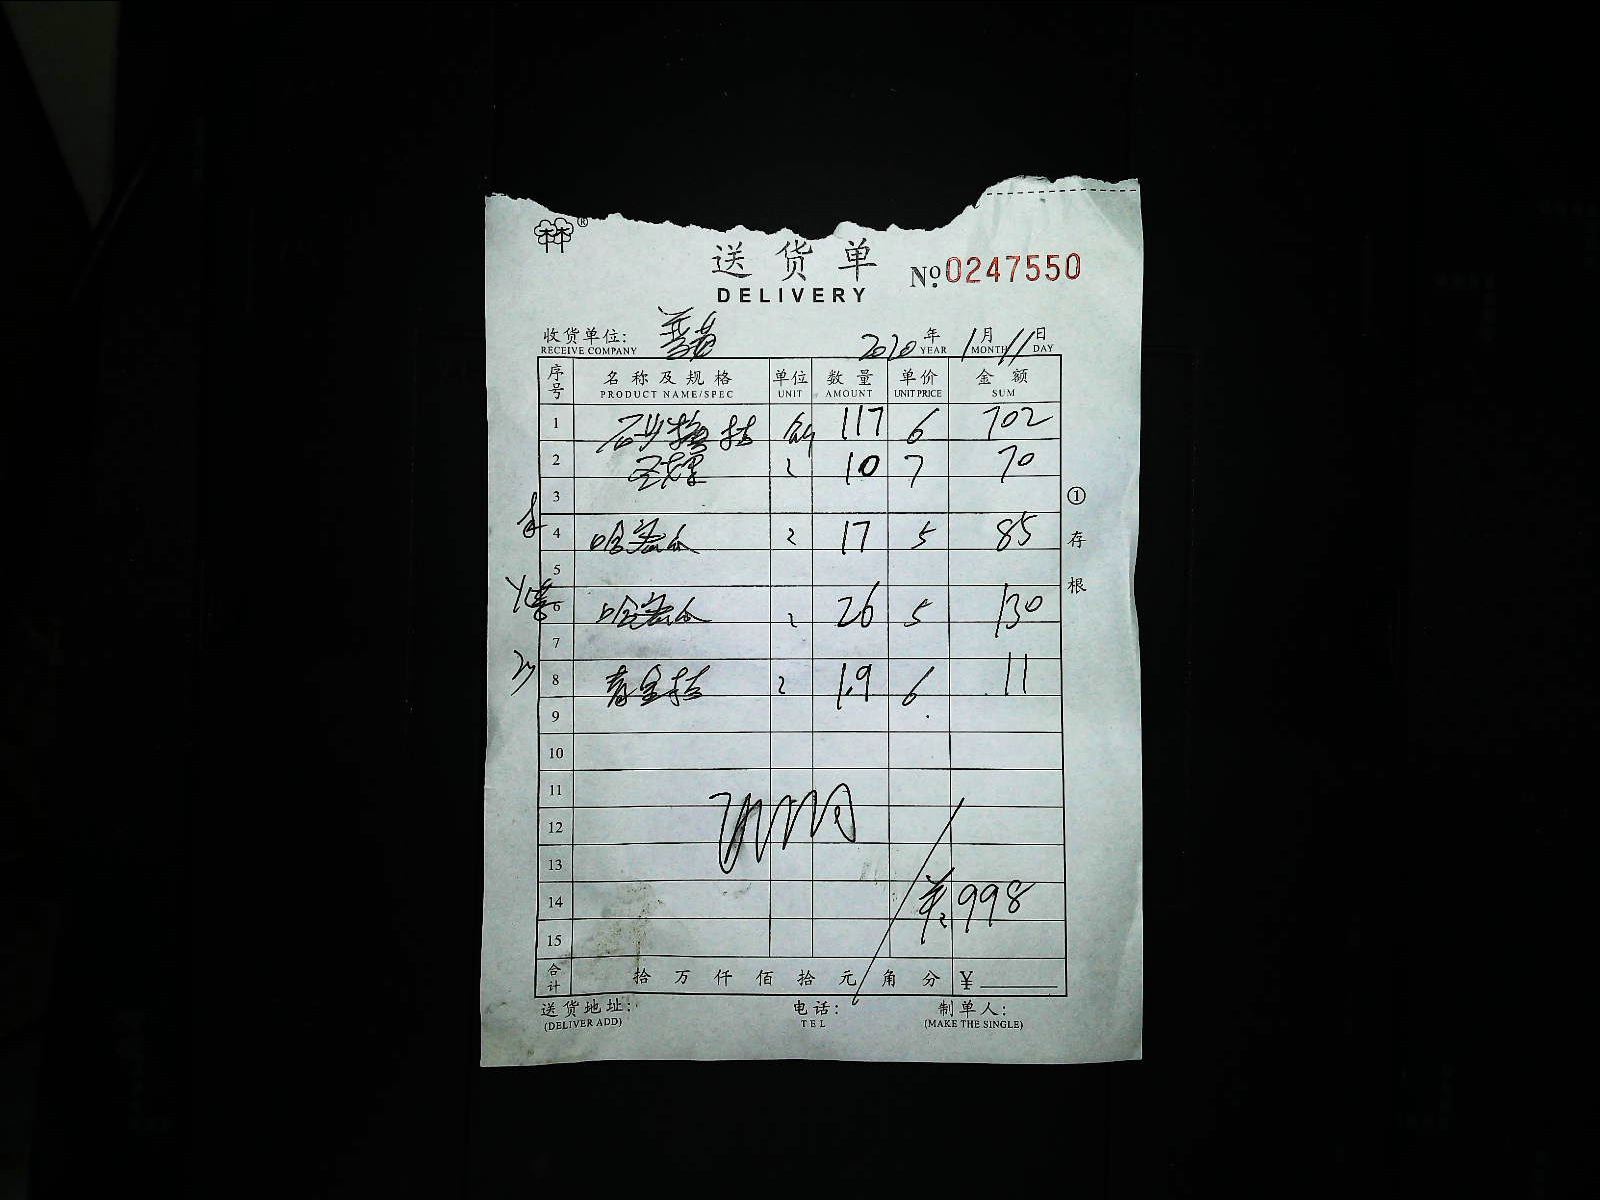 送货单
DELIVERY
No. 0247550
收货单位:
RECEIVE COMPANY
2020 年 1 月 11 日
YEAR MONTH DAY
序号 名称及规格 单位 数量 单价 金额
PRODUCT NAME/SPEC UNIT AMOUNT UNIT PRICE SUM
1 砂糖桔 117 6 702
2 10 7 70
3
4 哈密瓜 17 5 85
5
6 哈密瓜 26 5 130
7
8 青金桔 1.9 6 11
9
10
11
12
13
14 998
15
合计 拾 万 仟 佰 拾 元 角 分 ¥
送货地址: 电话: 制单人:
(DELIVER ADD) TEL (MAKE THE SINGLE)
① 存根